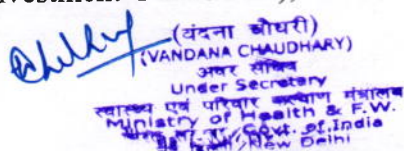 (वंदना चौधरी)
(VANDANA CHAUDHARY)
अवर सचिव
Under Secretary
स्वास्थ्य एवं परिवार कल्याण मंत्रालय
Ministry of Health & F.W.
Govt. of India
New Delhi